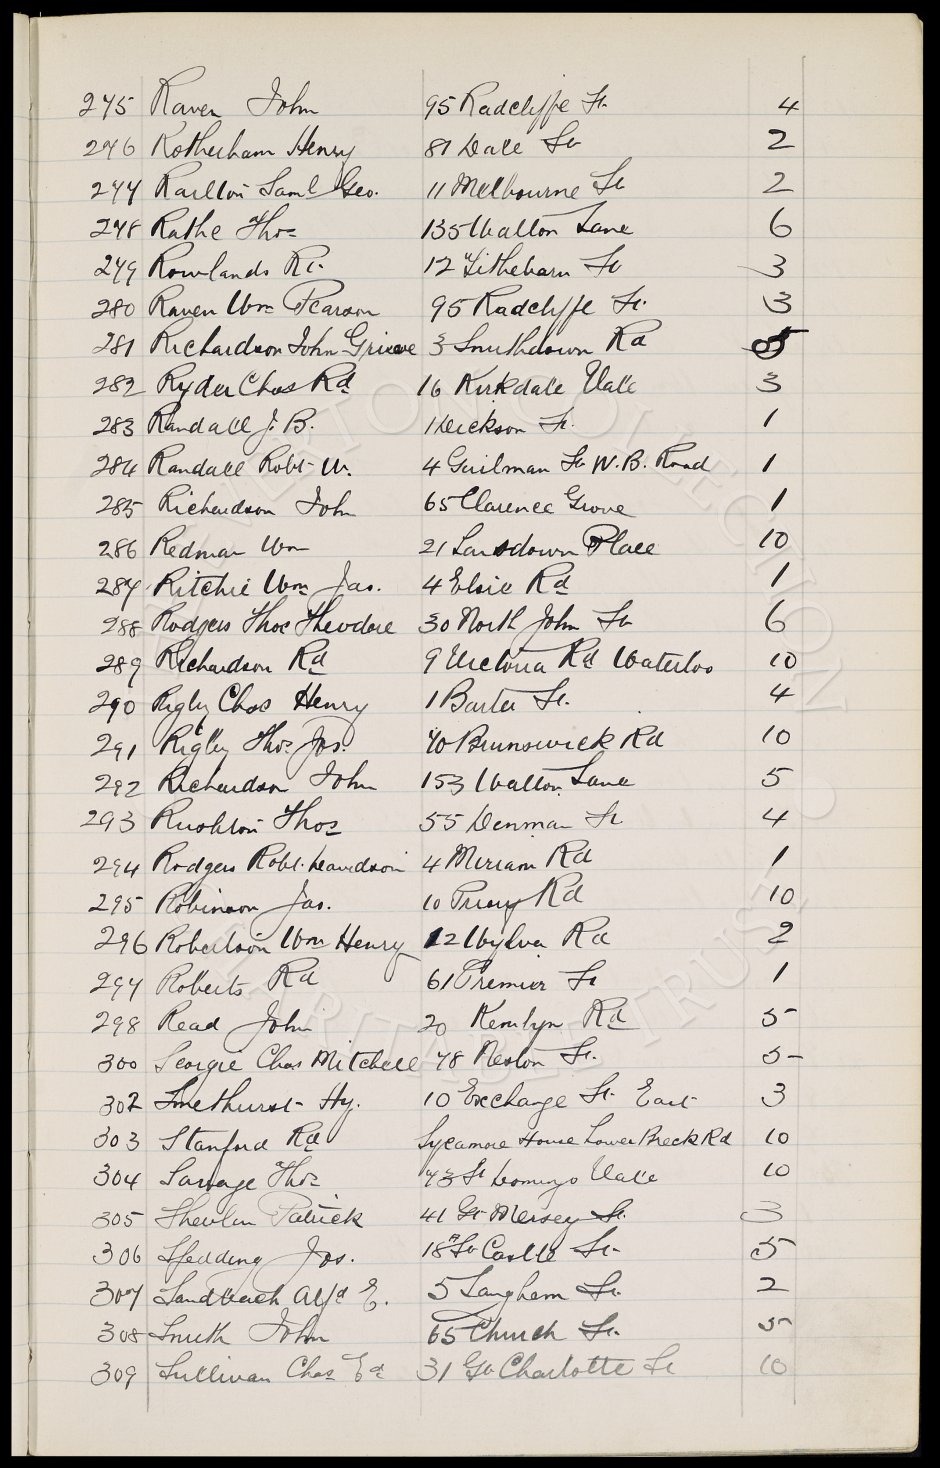 275 Raven John 95 Radclyffe St. 4
276 Rotherham Henry 81 Dale St 2
277 Railton Saml Geo. 11 Melbourne St 2
278 Rathe Thos 135 Walton Lane 6
279 Rowlands Rt. 12 Tithebarn St 3
280 Raven Wm Pearson 95 Radclyffe St. 3
281 Richardson John Grieve 3 Smithdown Rd 5
282 Ryder Chas Rd 16 Kirkdale Vale 3
283 Randall J. B. 1 Dickson St. 1
284 Randall Robt W. 4 St W. B. Road 1
285 Richardson John 65 Clarence Grove 1
286 Redman Wm 21 Lansdown Place 10
287 Ritchie Wm Jas. 4 Elsie Rd 1
288 Rodgers Thos Theodore 30 North John St 6
289 Richardson Rd 9 Victoria Rd Waterloo 10
290 Rigby Chas Henry 1 Barter St. 4
291 Rigby Thos Jos. 70 Brunswick Rd 10
292 Richardson John 153 Walton Lane 5
293 Rushton Thos 55 Denman St 4
294 Rodgers Robt. Davidson 4 Miriam Rd 1
295 Robinson Jas. 10 Priory Rd 10
296 Robertson Wm Henry 12 Wylva Rd 2
297 Roberts Rd 61 Premier St 1
298 Read John 20 Kemlyn Rd 5
300 Scorgie Chas Mitchell 78 Neston St. 5
302 Smethurst Hy. 10 Exchange St. East 3
303 Stanford Rd Sycamore House Lower Breck Rd 10
304 Savage Thos 73 St Domingo Vale 10
305 Shevlin Patrick 41 Gt Mersey St. 3
306 Spedding Jos. 18A Sth Castle St. 5
307 Sandbach Alfd E. 5 Langham St. 2
308 Smith John 65 Church St. 5
309 Sullivan Chas Ed 31 Gt Charlotte St 10
EVERTON COLLECTION
CHARITABLE TRUST